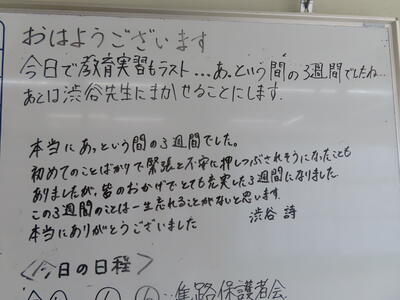 おはようございます
今日で教育実習もラスト…あっという間の3週間でしたね…
あとは渋谷先生にまかせることにします.
本当にあっという間の3週間でした。
初めてのことばかりで緊張と不安に押しつぶされそうになったことも
ありましたが、皆のおかげでとても充実した3週間になりました
この3週間のことは一生忘れることがないと思います.
本当にありがとうございました 渋谷 詩
<今日の日程>
集路保護者会